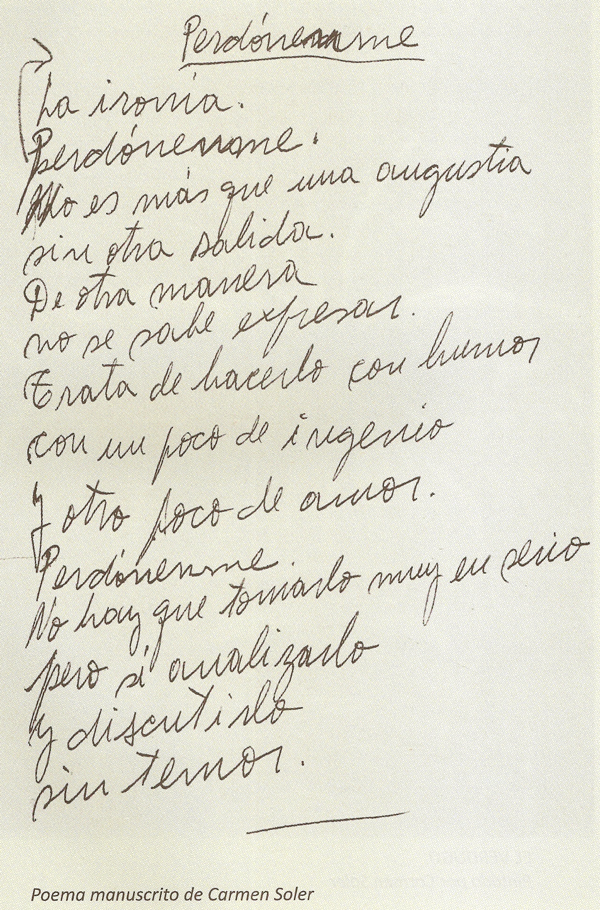 Perdónenme
La ironía.
Perdónenme.
No es más que una angustia
sin otra salida.
De otra manera
no se sabe expresar.
Trata de hacerlo con humor
con un poco de ingenio
y otro poco de amor.
Perdónenme.
No hay que tomarlo muy en serio
pero sí analizarlo
y discutirlo
sin temor.
Poema manuscrito de Carmen Soler